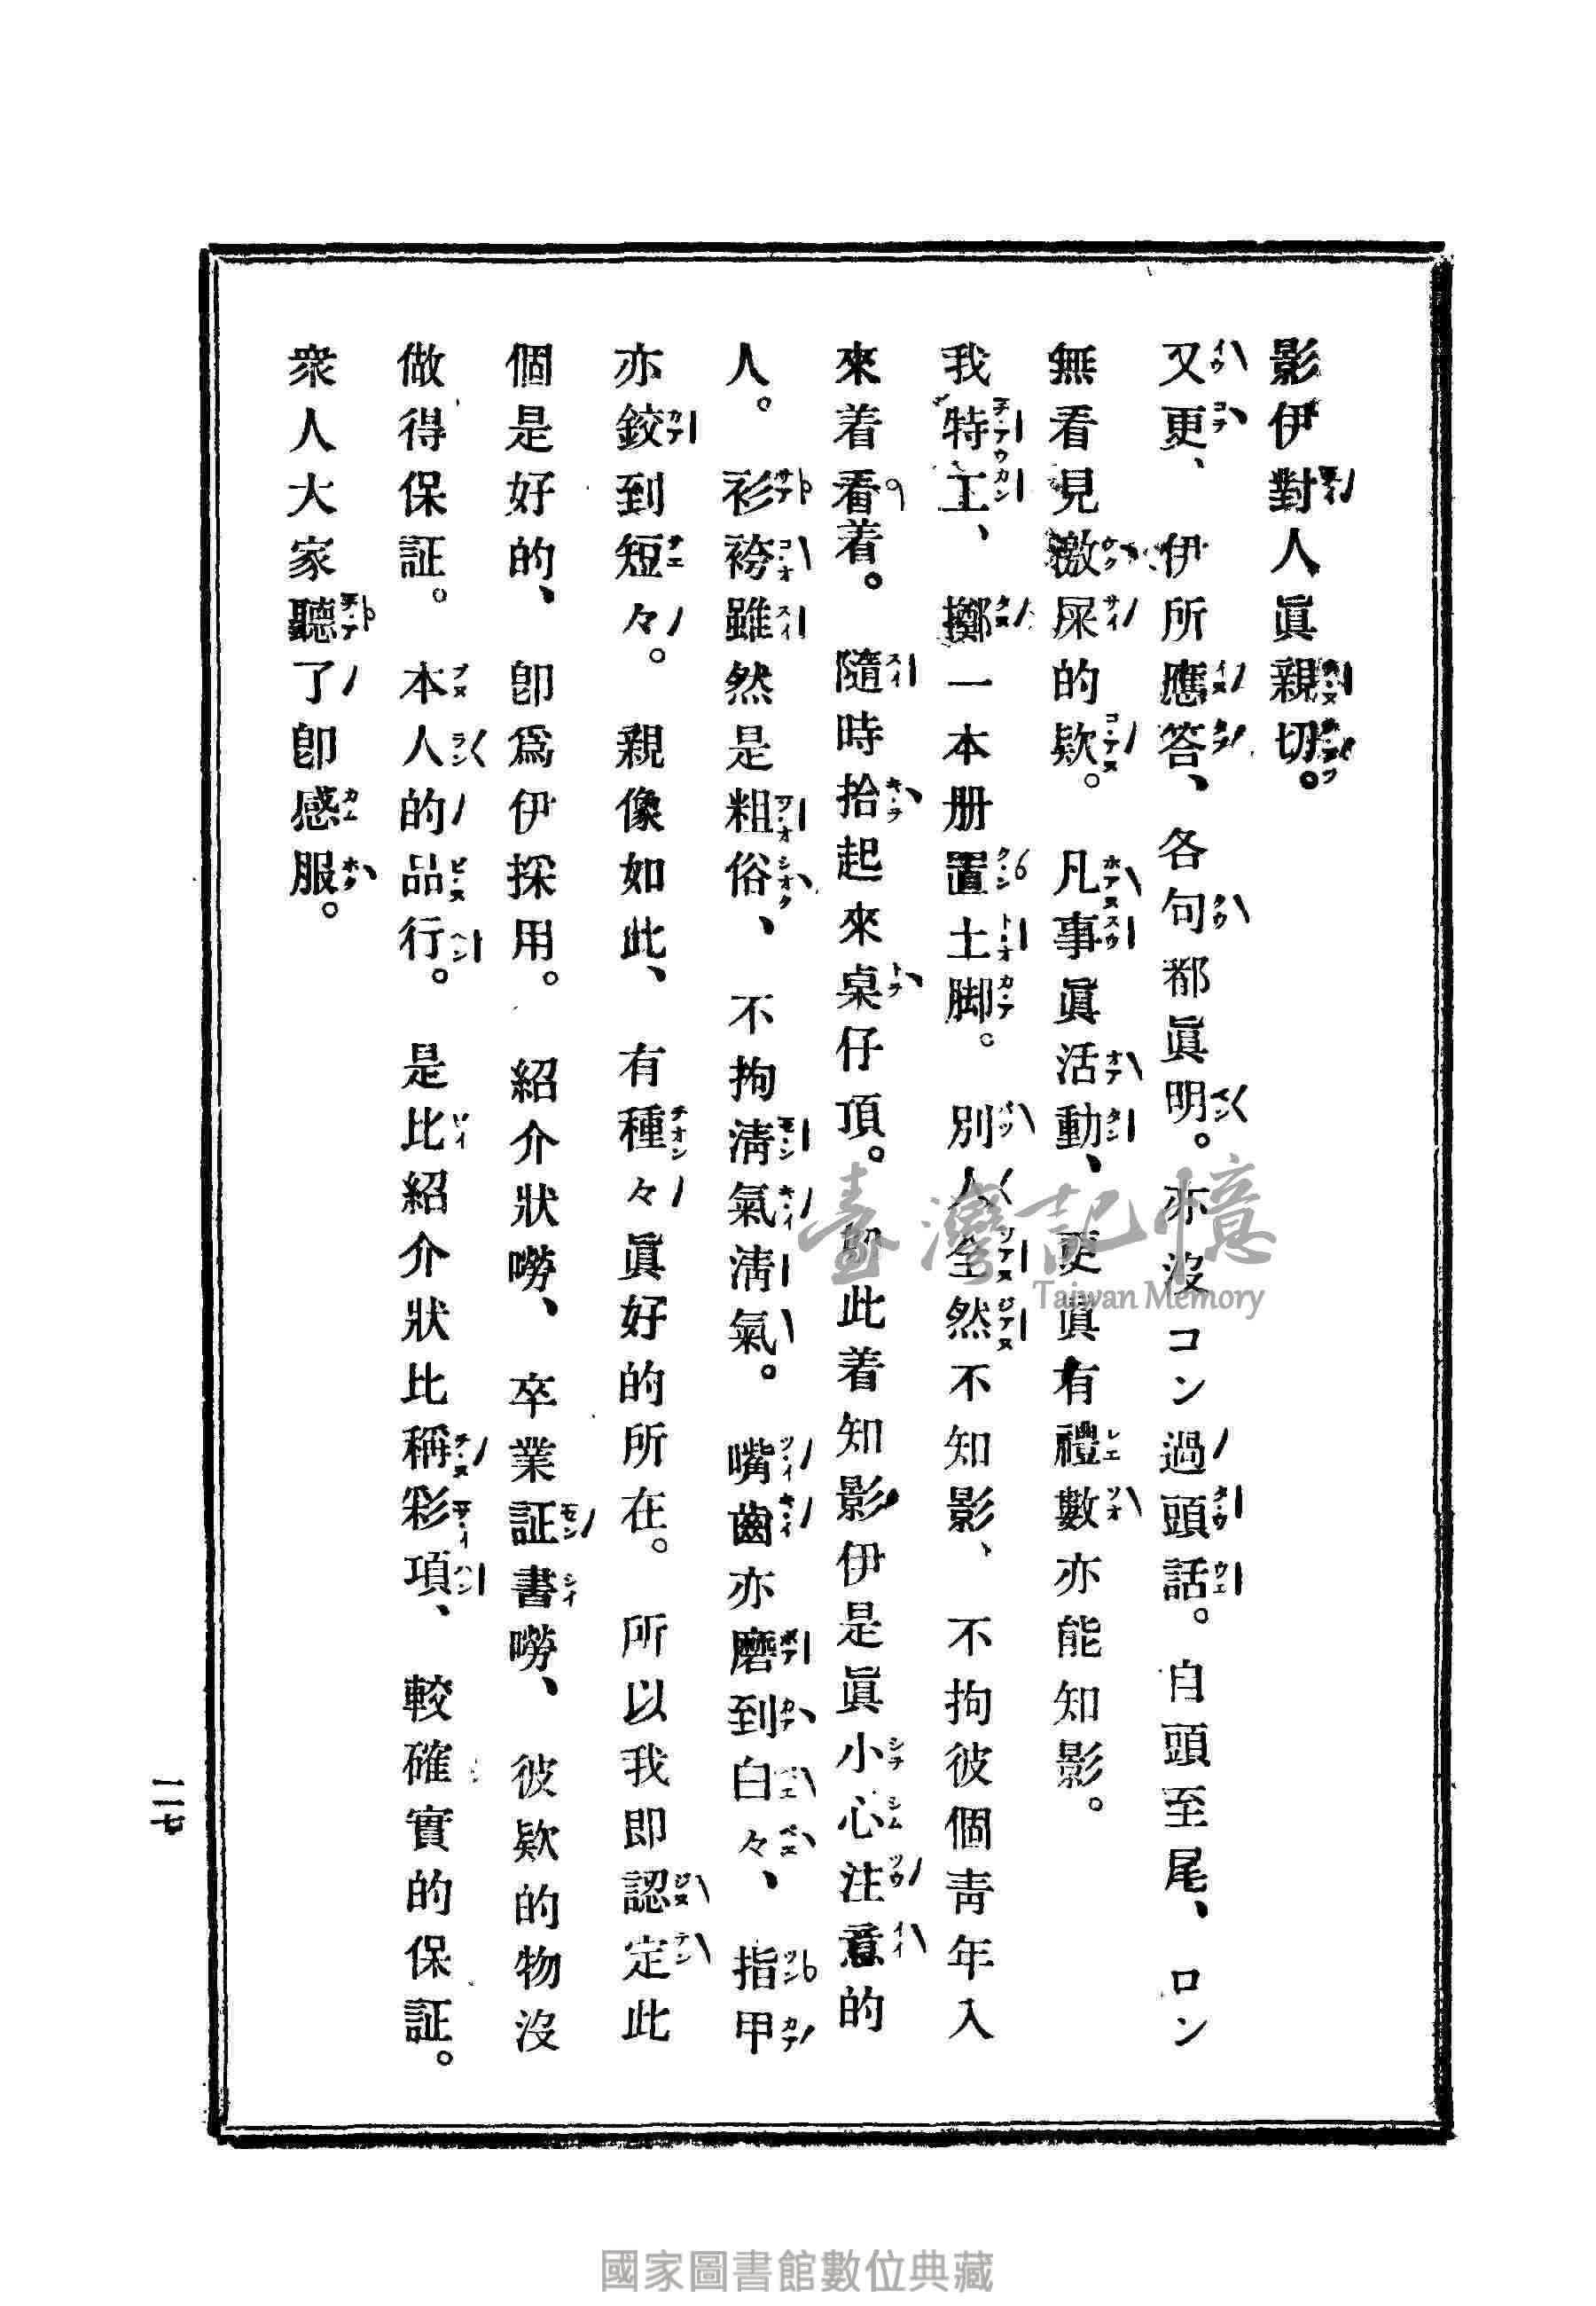 影伊對人眞親切。
又更、伊所應答、各句都眞明。亦沒コン過頭話。自頭至尾、ロン
無看見激屎的欵。凡事眞活動、更眞有禮數亦能知影。
我特工、擲一本册置土脚。別人全然不知影、不拘彼個靑年入
來着看着。隨時拾起來桌仔頂。對此着知影伊是眞小心注意的
人。衫袴雖然是粗俗、不拘淸氣淸氣。嘴齒亦磨到白々、指甲
亦鉸到短々。親像如此、有種々眞好的所在。所以我即認定此
個是好的、卽爲伊採用。紹介狀嘮、卒業証書嘮、彼欵的物沒
做得保証。本人的品行。是比紹介狀比稱彩項、較確實的保証。
衆人大家聽了卽感服。
二七
臺灣記憶
Taiwan Memory
國家圖書館數位典藏